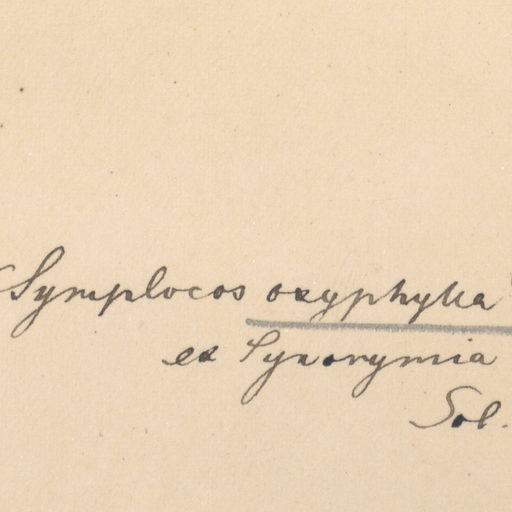 Symplocos oxyphylla
ex Synonymia
Sol.